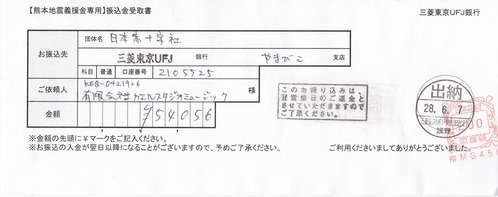 【熊本地震義援金専用】振込金受取書
三菱東京UFJ銀行
お振込先
団体名 日本赤十字社
三菱東京UFJ 銀行 やまびこ 支店
科目 普通 口座番号 2105525
ご依頼人
KEQ-0421926
有限会社カエルスタジオミュージック 様
金額 ¥54056
このお振り込みは、
翌営業日のご送金と
させていただきますので
ご了承ください。
出納
28.6.7
※金額の先頭に¥マークをご記入ください。
※お振込の入金が翌日以降になることがございますので、予めご了承ください。
ご利用くださいましてありがとうございました。